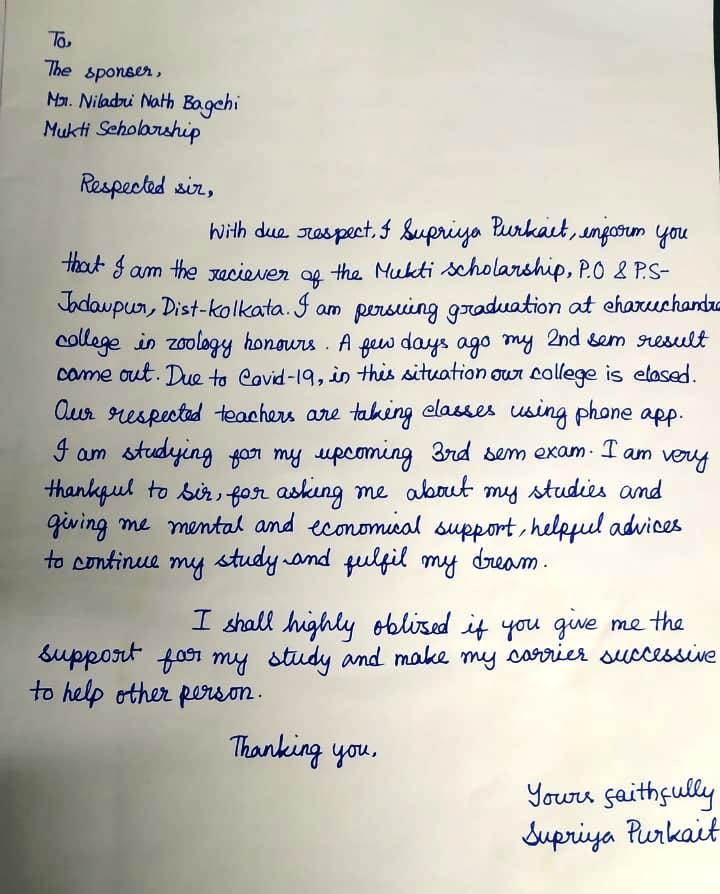 To,
The sponser,
Mr. Niladri Nath Bagchi
Mukti Scholarship
Respected sir,
With due respect, I Supriya Purkait, inform you
that I am the reciever of the Mukti scholarship, P.O & P.S-
Jadavpur, Dist-Kolkata. I am persuing graduation at charuchandra
college in zoology honours. A few days ago my 2nd sem result
came out. Due to Covid-19, in this situation our college is closed.
Our respected teachers are taking classes using phone app.
I am studying for my upcoming 3rd sem exam. I am very
thankful to sir, for asking me about my studies and
giving me mental and economical support, helpful advices
to continue my study and fulfil my dream.
I shall highly oblized if you give me the
support for my study and make my carrier successive
to help other person.
Thanking you,
Yours faithfully
Supriya Purkait